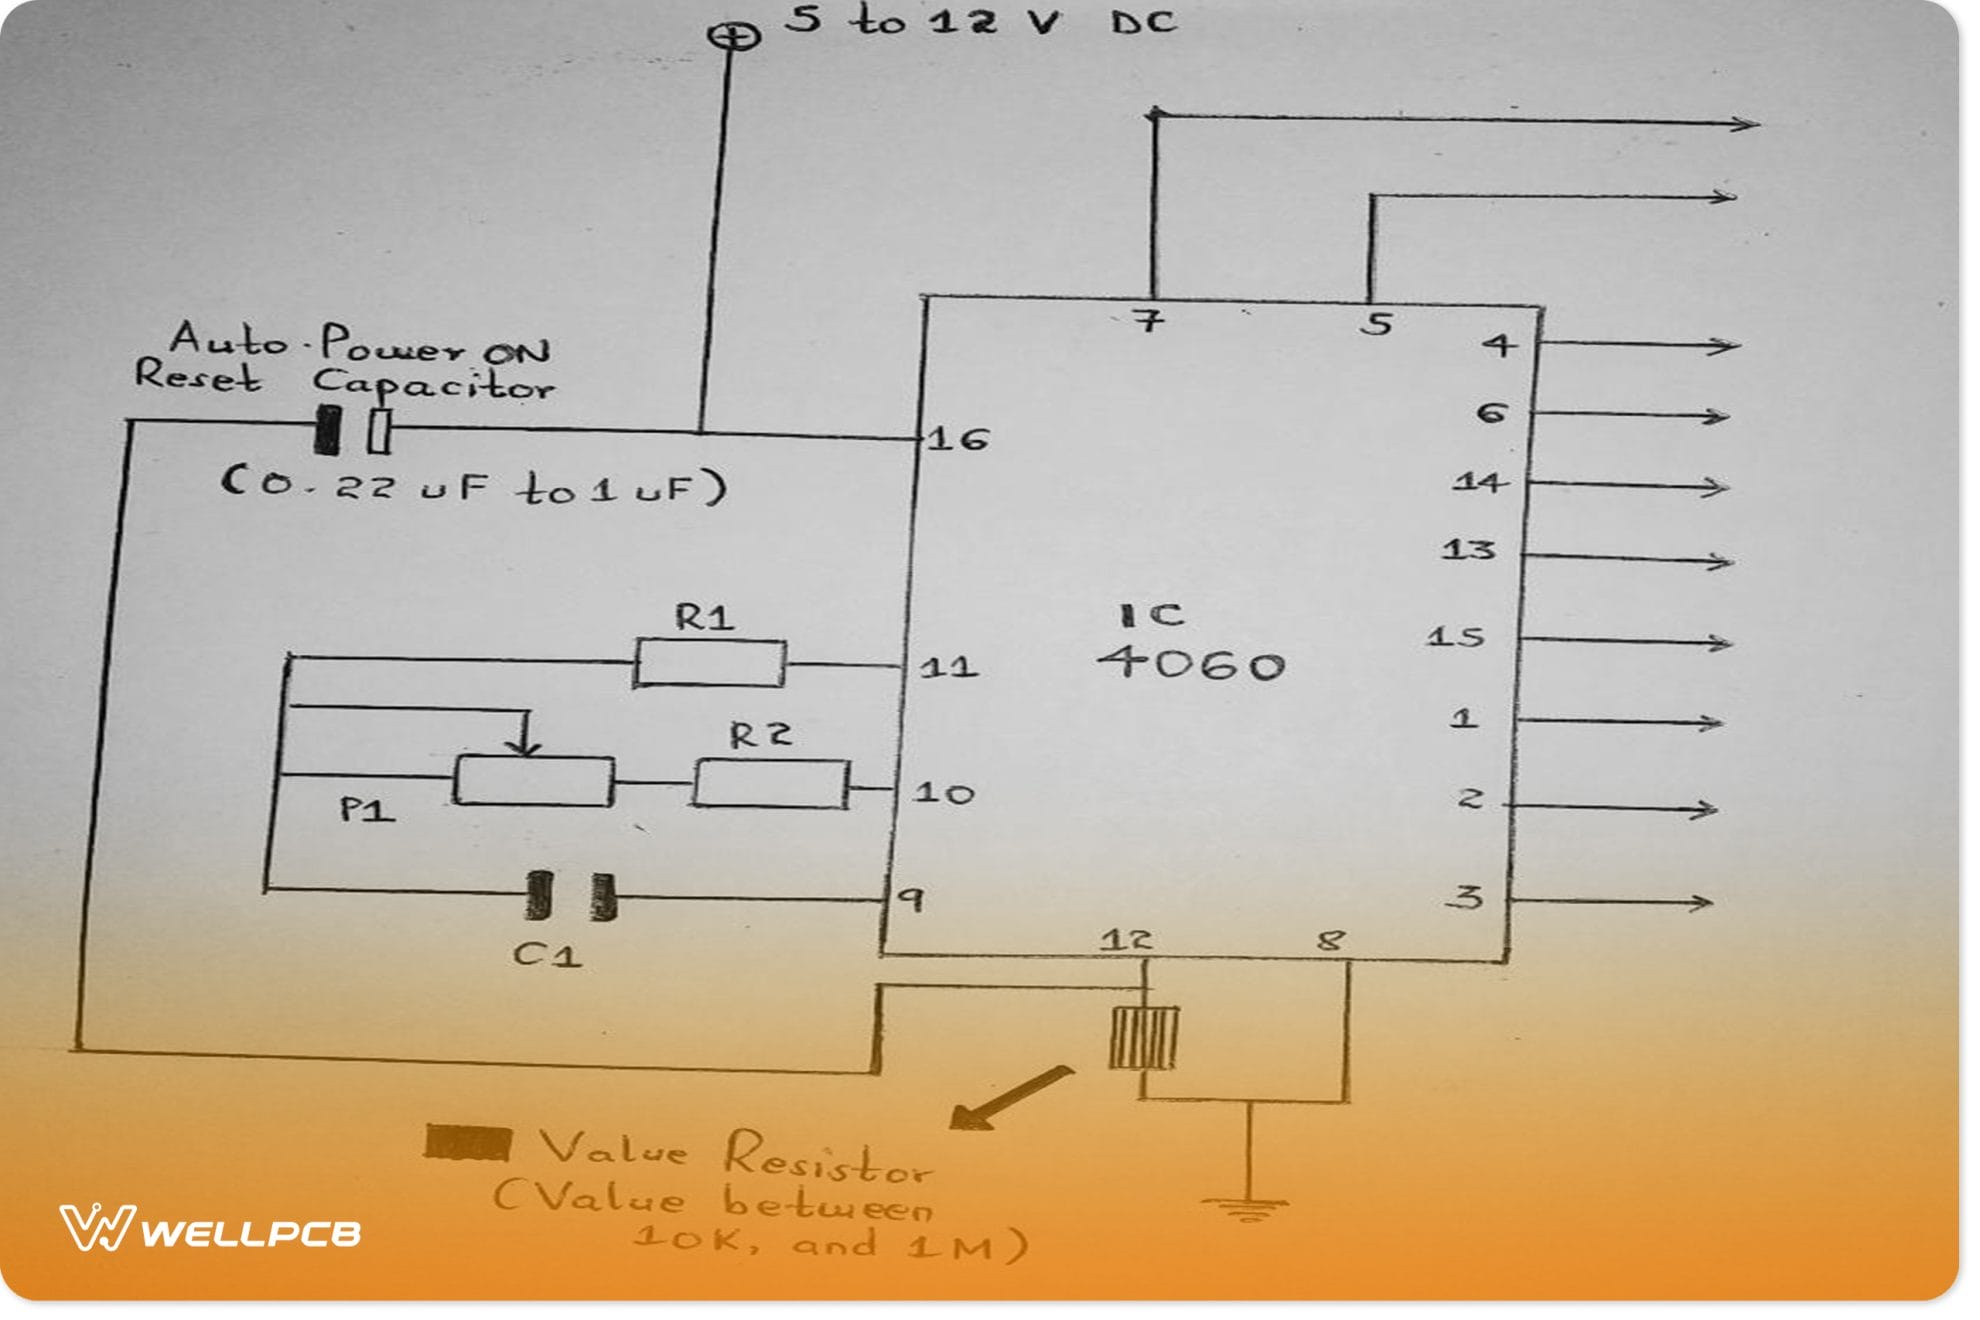 5 to 12 V DC
7
5
4
Auto Power ON
Reset Capacitor
6
16
(0.22 uF to 1 uF)
14
13
R1
IC
4060
15
11
R2
1
10
2
P1
9
3
C1
12
8
Value Resistor
(Value between
10K, and 1M)
WELLPCB